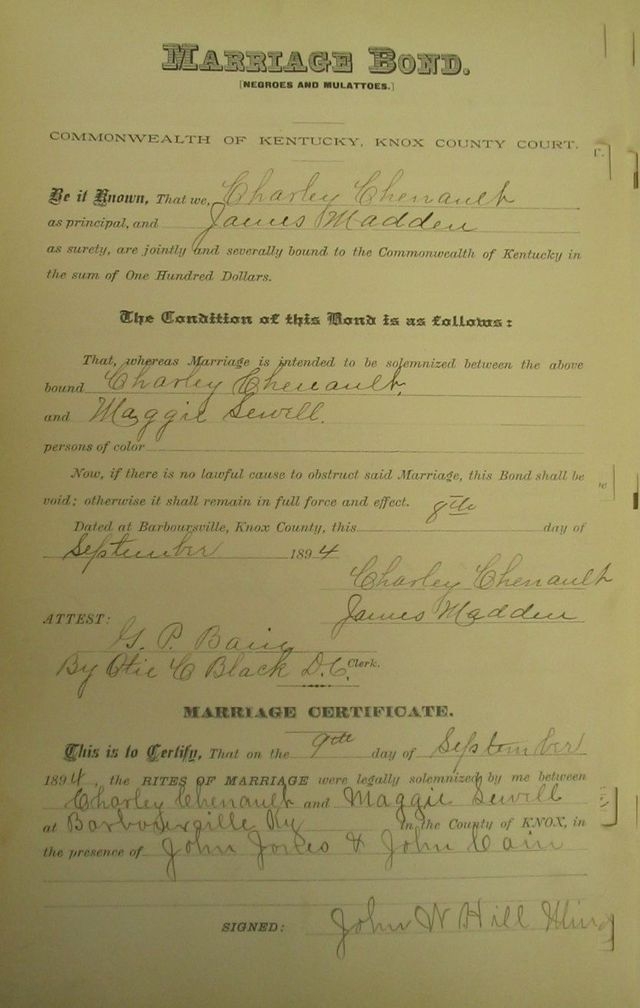 MARRIAGE BOND.
[NEGROES AND MULATTOES.]
COMMONWEALTH OF KENTUCKY, KNOX COUNTY COURT.
Be it Known, That we, Charley Chenault
as principal, and James Madden
as surety, are jointly and severally bound to the Commonwealth of Kentucky in
the sum of One Hundred Dollars.
The Condition of this Bond is as follows:
That, whereas Marriage is intended to be solemnized between the above
bound Charley Chenault,
and Maggie Sewell.
persons of color
Now, if there is no lawful cause to obstruct said Marriage, this Bond shall be
void; otherwise it shall remain in full force and effect.
Dated at Barboursville, Knox County, this 8th day of
September 1894
Charley Chenault
James Madden
ATTEST:
G. P. 
By Otie C Black D.C. Clerk.
MARRIAGE CERTIFICATE.
This is to Certify, That on the 9th day of September
1894, the RITES OF MARRIAGE were legally solemnized by me between
Charley Chenault and Maggie Sewell
at Barbourville Ky in the County of KNOX, in
the presence of John Jones & John Cain
SIGNED: John W Hill